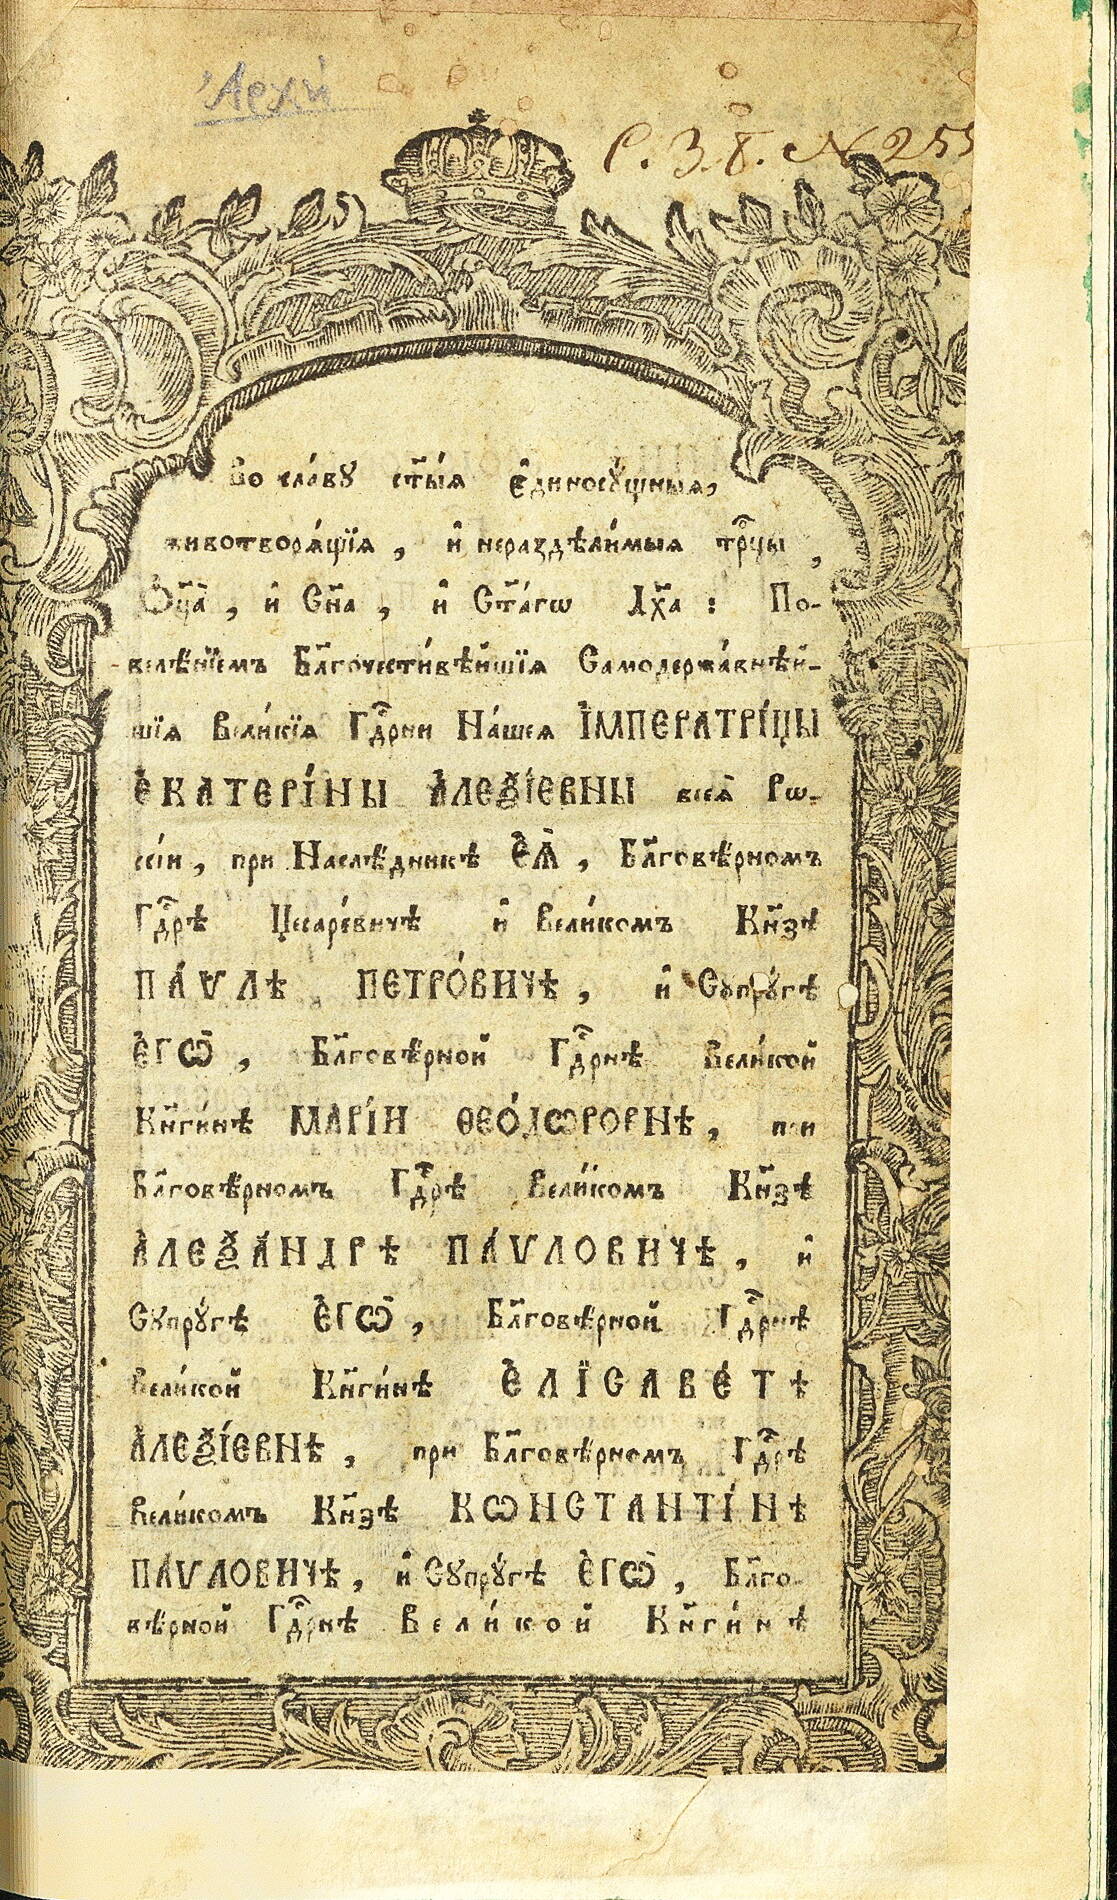 Архи
С. З. 8. № 255
Во сла́вꙋ ст҃ы́ѧ є҆диносꙋ́щныѧ,
животворѧ́щїѧ, и҆ нераздѣли́мыѧ трⷪ҇цы,
Ѻ҆ц҃а̀, и҆ Сн҃а, и҆ Ст҃а́гѡ Дх҃а: По-
велѣ́нїемъ Бл҃гочести́вѣйшїѧ Самодержа́внѣй-
шїѧ Вели́кїѧ Гдⷭ҇рни На́шеѧ І҆МПЕРАТРІ́ЦЫ
Є҆КАТЕРІ́НЫ А҆ЛЕѮІ́ЕВНЫ всеѧ̀ Рѡ-
сі́и, при Наслѣ́дникѣ Є҆Ѧ̀, Бл҃говѣ́рномъ
Гдⷭ҇рѣ Цесаре́вичѣ и҆ Вели́комъ Кн҃зѣ
ПА́ѴЛѢ ПЕТРО́ВИЧѢ, и҆ Сꙋпрꙋ́гѣ
Є҆ГѠ̀, Бл҃говѣ́рной Гдⷭ҇рнѣ Вели́кой
Кн҃ги́нѣ МАРІ́И ѲЕО́ДѠРОВНѢ, при
Бл҃говѣ́рномъ Гдⷭ҇рѣ Вели́комъ Кн҃зѣ
А҆ЛЕѮА́НДРѢ ПА́ѴЛОВИЧѢ, и҆
Сꙋпрꙋ́гѣ Є҆ГѠ̀, Бл҃говѣ́рной Гдⷭ҇рнѣ
Вели́кой Кн҃ги́нѣ Є҆ЛЇСАВЕ́ТѢ
А҆ЛЕѮІ́ЕВНѢ, при Бл҃говѣ́рномъ Гдⷭ҇рѣ
Вели́комъ Кн҃зѣ КѠНСТАНТІ́НѢ
ПА́ѴЛОВИЧѢ, и҆ Сꙋпрꙋ́гѣ Є҆ГѠ̀, Бл҃го-
вѣ́рной Гдⷭ҇рнѣ Вели́кой Кн҃ги́нѣ